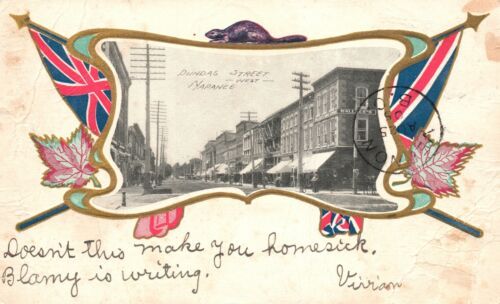 DUNDAS STREET
WEST
NAPANEE
WALLACE'S
Doesn't this make you homesick.
Blamy is writing.
Vivian